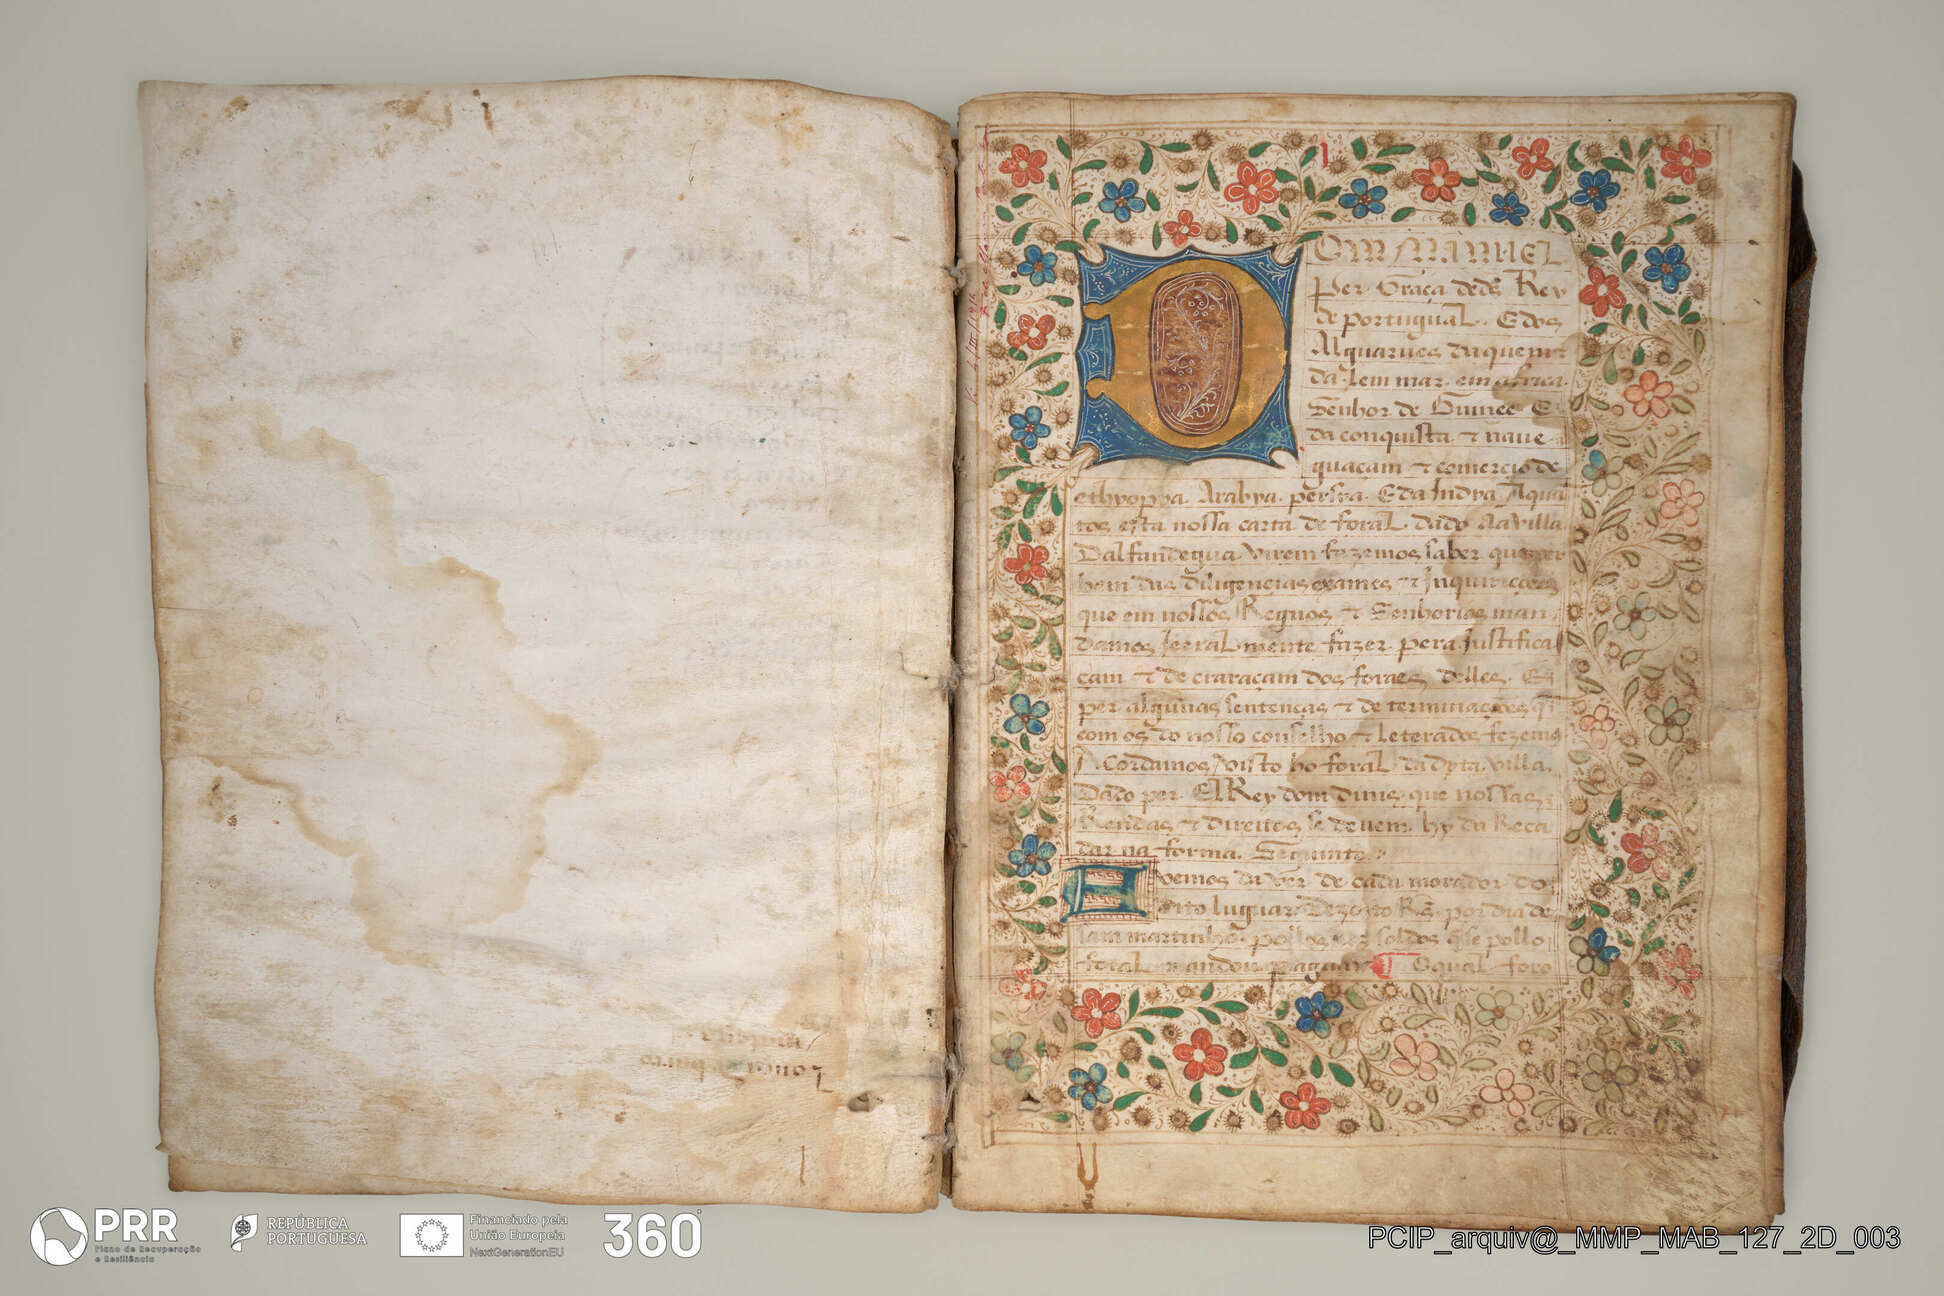 OM MANUEL
Per Graça de ds Rey
de portugual. E dos
Alguarues daquem e
da lem mar em africa.
Senhor de Guinee E
da conquista & naue
guaçam & comercio de
ethyopya. Arabya. persya. E da Indya Aqua
tos esta nossa carta de foral. dado aa villa
Dalfandegua. virem fazemos saber que per
bem das diligencias exames & Inquiriçoees
que em nossos Regnos & Senhorios man
damos Jeeral mente fazer pera Justifica
cam & de craraçam dos foraes delles. E
per alguuas sentenças & de terminações q̃
com os do nosso conselho & leterados fezemos
Acordamos visto ho foral da dpta. villa
Dado per El Rey dom dinis que nossas
Rendas & direitos se deuem hy da Reca
dar na forma. Seguinte.
Auemos da ver de cada morador do
dito luguar Dezoyto Rs. por dia de
sam martinho. pollos soldos q̃ se pollo
foral mandou paguar O qual foro
PRR
Plano de Recuperação
e Resiliência
REPÚBLICA
PORTUGUESA
Financiado pela
União Europeia
NextGenerationEU
360°
PCIP_arquiv@_MMP_MAB_127_2D_003